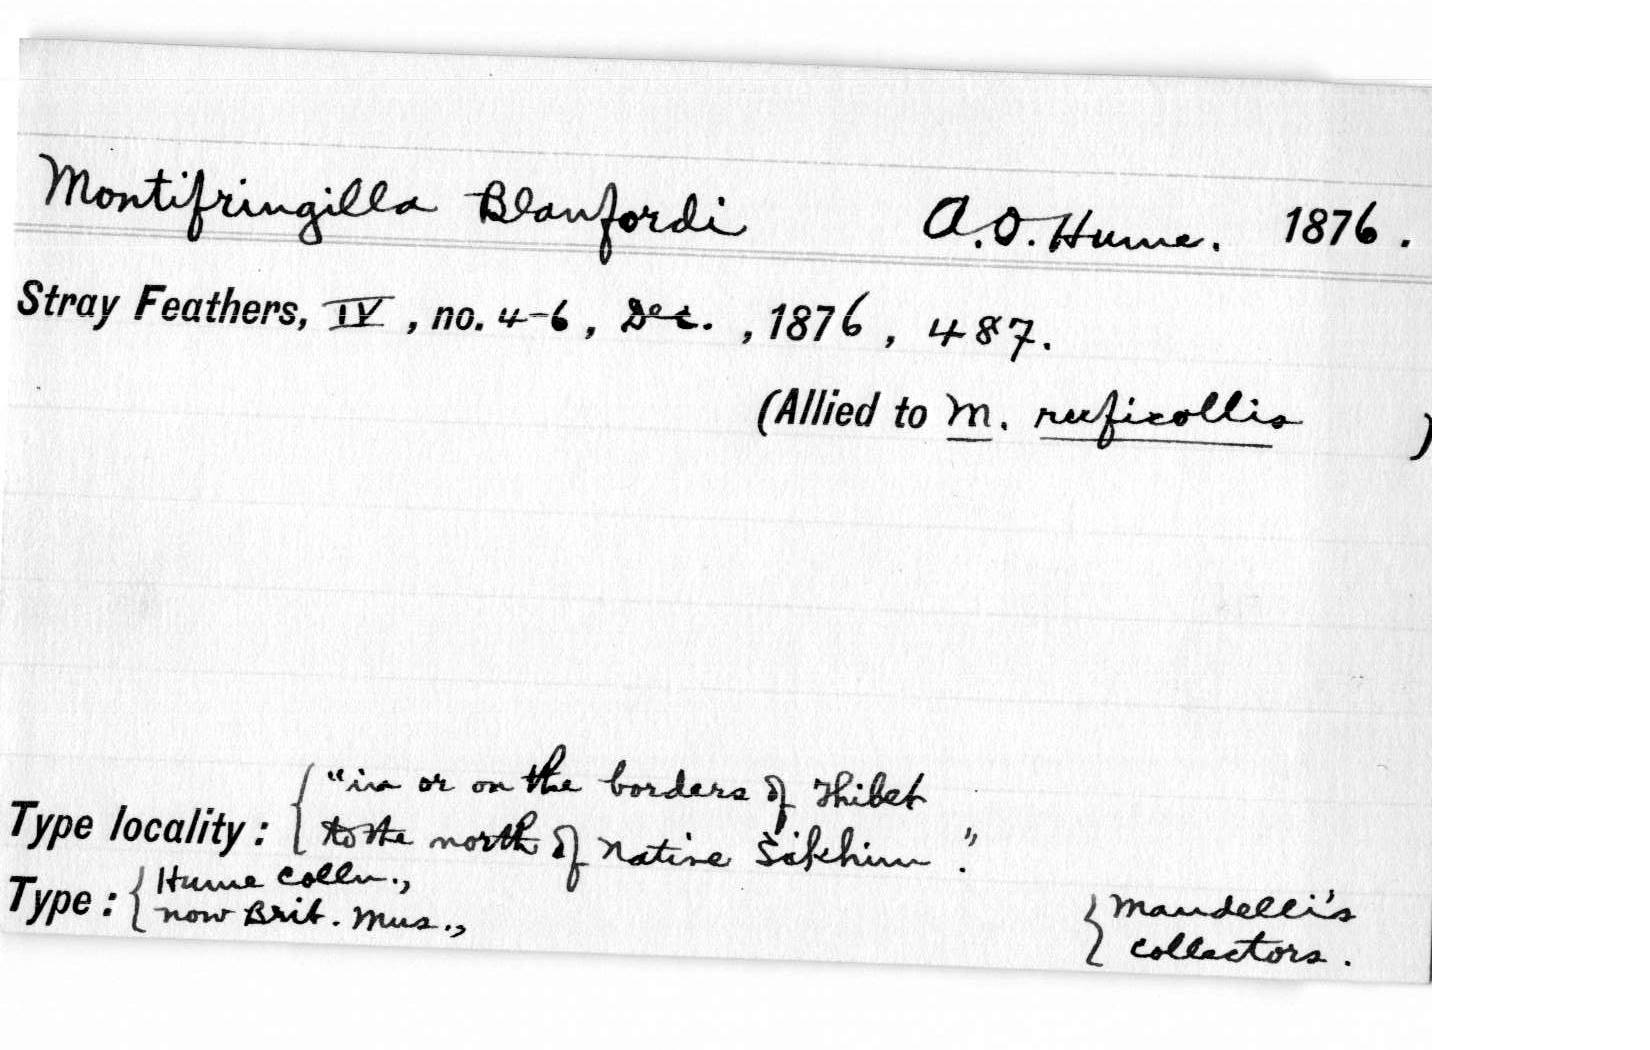 Montifringilla Blanfordi A.O. Hume. 1876.
Stray Feathers, IV, no. 4-6, Dec., 1876, 487.
(Allied to M. ruficollis )
Type locality: { "in or on the borders of Thibet
to the north of Native Sikhim."
Type: { Hume Colln.,
now Brit. Mus.,
{ Mandelli's
collectors.